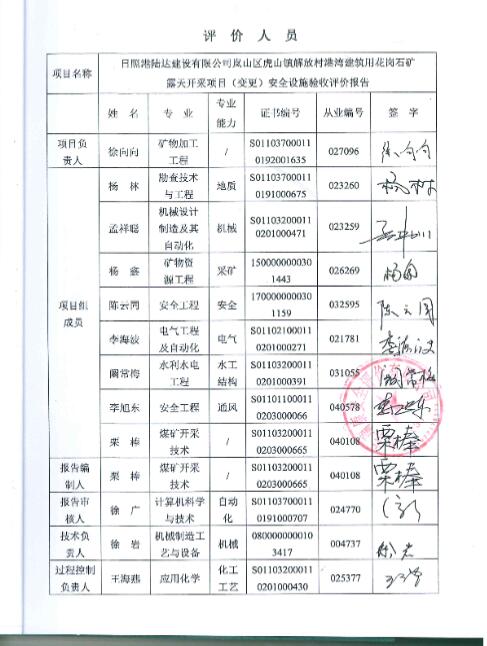 评价人员
项目名称
日照港陆达建设有限公司岚山区虎山镇解放村港湾建筑用花岗石矿
露天开采项目（变更）安全设施验收评价报告
姓名 专业 专业能力 证书编号 从业编号 签字
项目负责人 徐向向 矿物加工工程 / S011037000110192001635 027096
项目组成员
杨林 勘查技术与工程 地质 S011037000110191000675 023260 杨林
孟祥聪 机械设计制造及其自动化 机械 S011032000110201000471 023259
杨鑫 矿物资源工程 采矿 1500000000301443 026269 杨鑫
陈云同 安全工程 安全 1700000000301159 032595 陈云同
李海波 电气工程及自动化 电气 S011021000110201000271 021781 李海波
阚常梅 水利水电工程 水工结构 S011032000110201000391 031055 阚常梅
李旭东 安全工程 通风 S011011000110203000066 040578 李旭东
栗棒 煤矿开采技术 / S011032000110203000665 040108 栗棒
报告编制人 栗棒 煤矿开采技术 / S011032000110203000665 040108 栗棒
报告审核人 徐广 计算机科学与技术 自动化 S011037000110191000707 024770
技术负责人 徐岩 机械制造工艺与设备 机械 0800000000103417 004737 徐岩
过程控制负责人 王海燕 应用化学 化工工艺 S011032000110201000430 025377